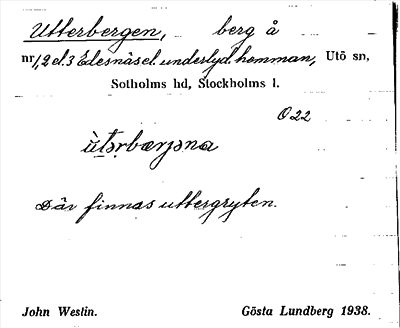 Utterbergen, berg å
nr 1, 2 el. 3 Edesnäs el. underlyd. hemman, Utö sn,
Sotholms hd, Stockholms l.
Ö 22
ùtərbærjəna
Där finnas uttergryten.
John Westin. Gösta Lundberg 1938.